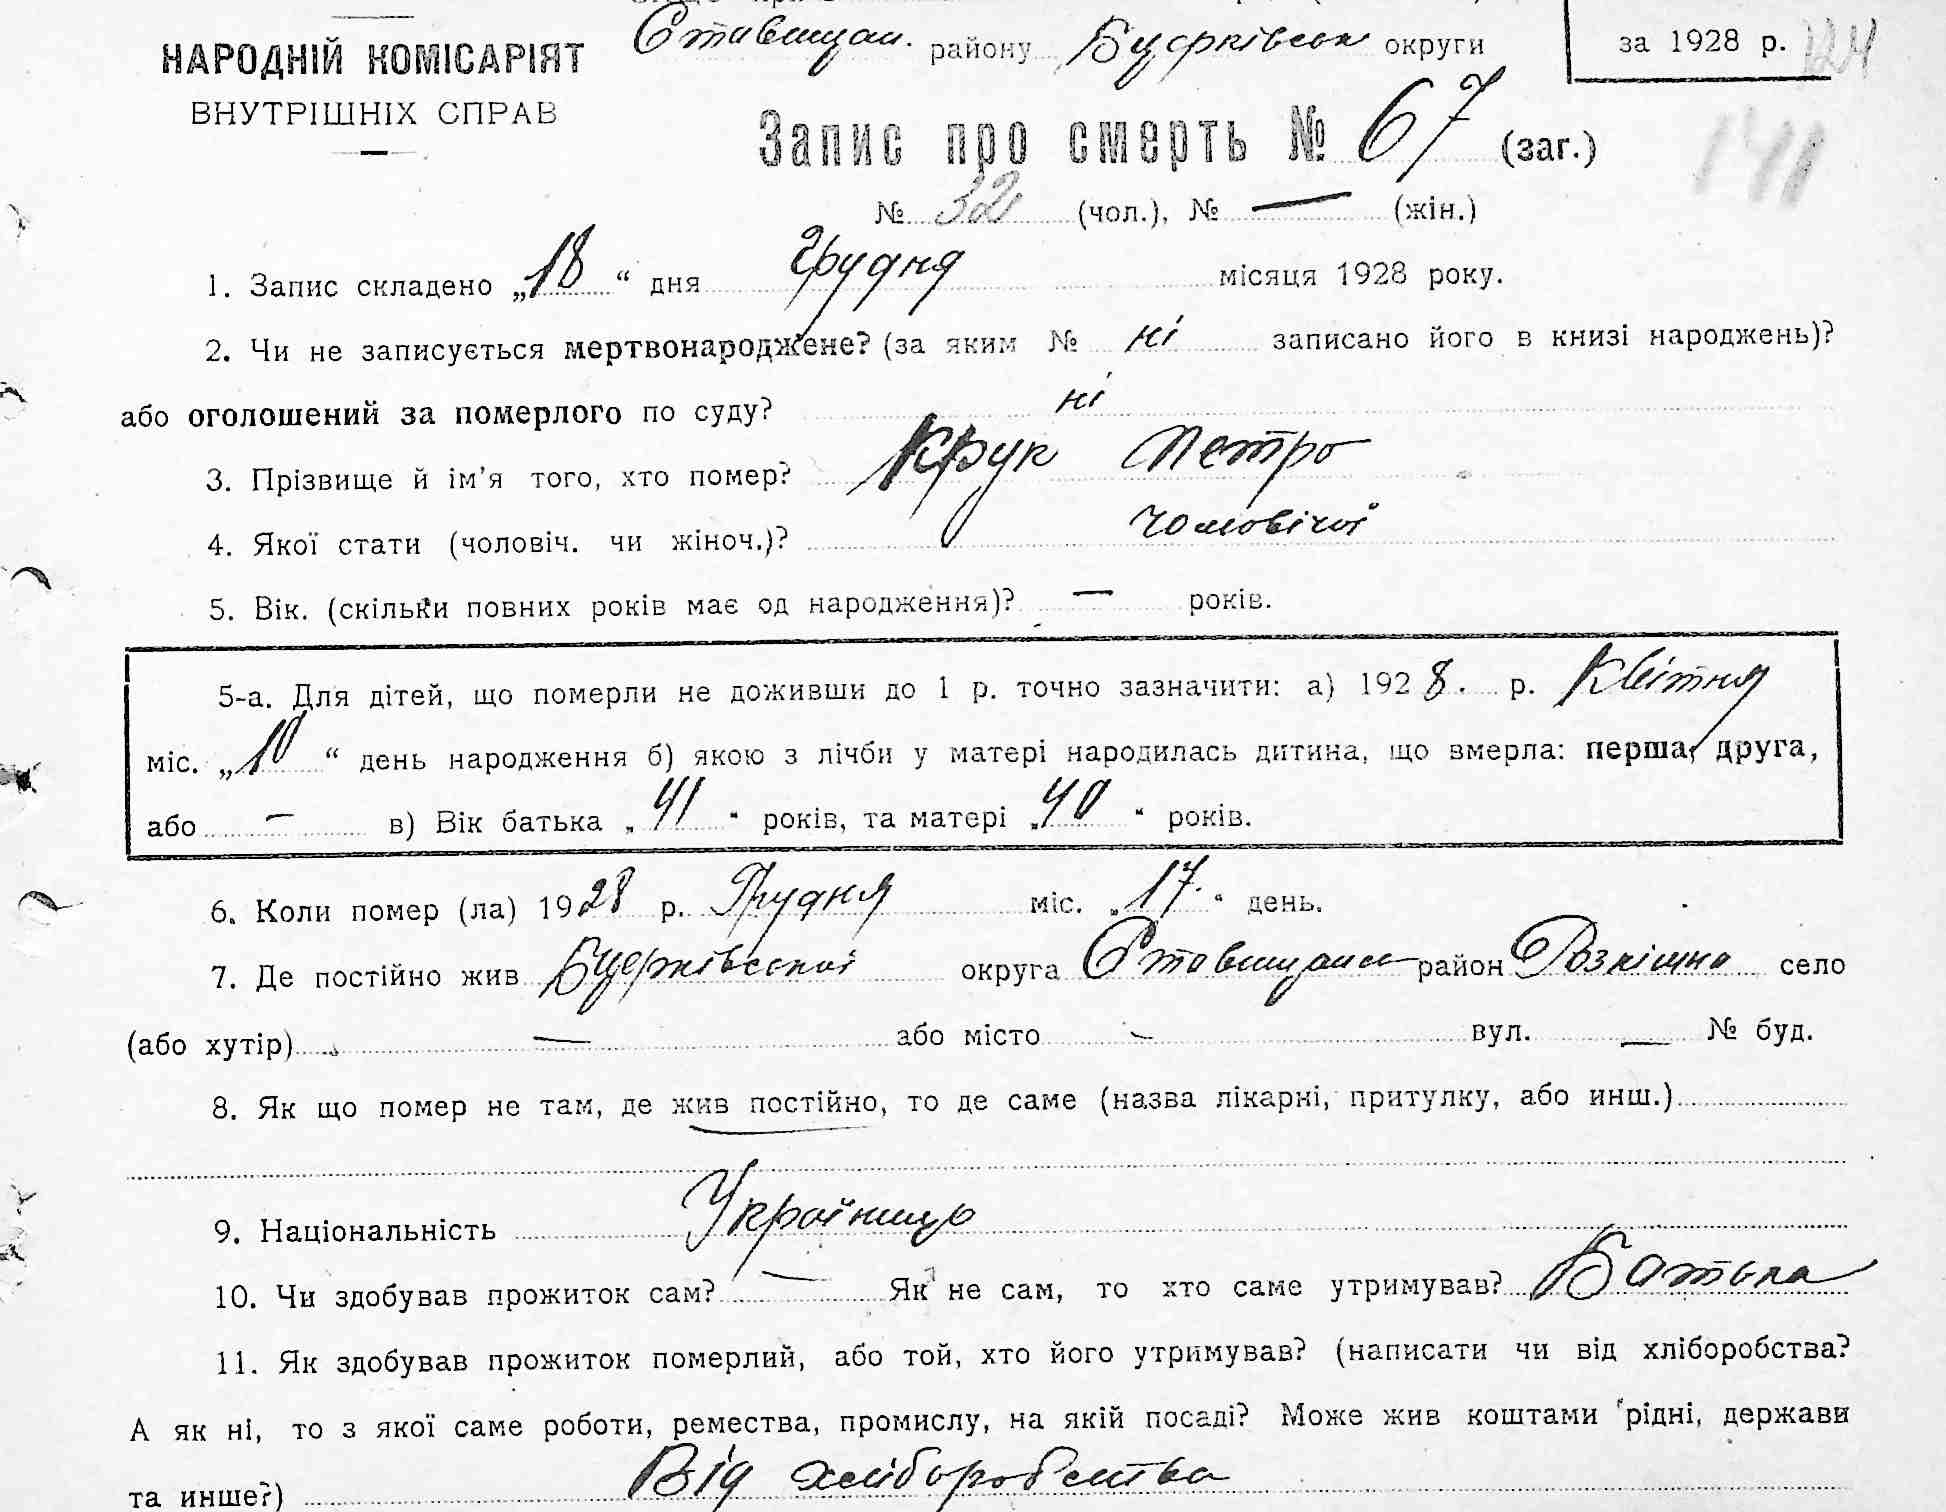 НАРОДНІЙ КОМІСАРІЯТ
ВНУТРІШНІХ СПРАВ
Ставищан. району Бцерківськ округи
за 1928 р. 124
Запис про смерть № 67 (заг.)
141
№ 32 (чол.), № — (жін.)
1. Запис складено „18“ дня Грудня місяця 1928 року.
2. Чи не записується мертвонароджене? (за яким № ні записано його в книзі народжень)?
або оголошений за померлого по суду? ні
3. Прізвище й ім’я того, хто помер? Крук Петро
4. Якої стати (чоловіч. чи жіноч.)? чоловічої
5. Вік. (скільки повних років має од народження)? — років.
5-а. Для дітей, що померли не доживши до 1 р. точно зазначити: а) 1928. р. Квітня
міс. „10“ день народження б) якою з лічби у матері народилась дитина, що вмерла: перша, друга,
або — в) Вік батька „41“ років, та матері „40“ років.
6. Коли помер (ла) 1928 р. Грудня міс. „17.“ день.
7. Де постійно жив Бцерківської округа Ставищанск район Розкішна село
(або хутір) — або місто — вул. — № буд.
8. Як що помер не там, де жив постійно, то де саме (назва лікарні, притулку, або инш.)
9. Національність Українець
10. Чи здобував прожиток сам? — Як не сам, то хто саме утримував? Батька
11. Як здобував прожиток померлий, або той, хто його утримував? (написати чи від хліборобства?
А як ні, то з якої саме роботи, ремества, промислу, на якій посаді? Може жив коштами рідні, держави
та инше?) Від хліборобства